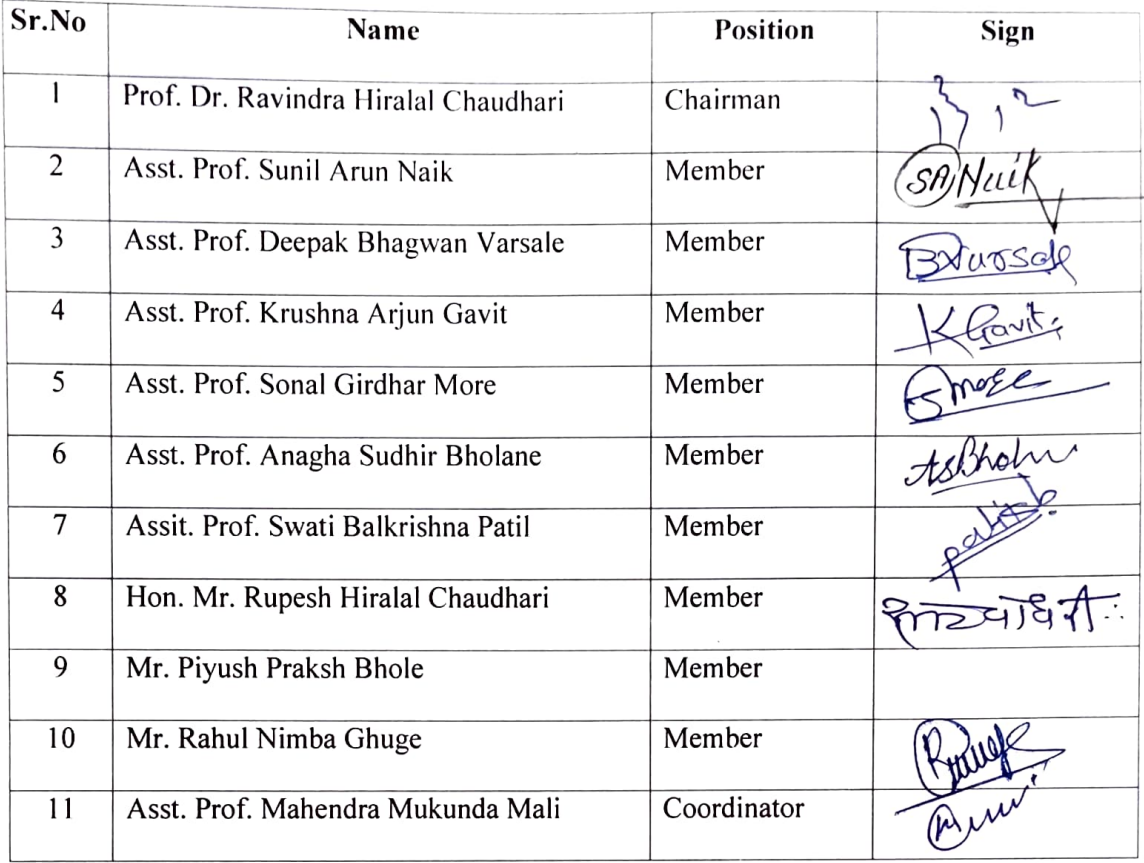 Sr.No Name Position Sign
1 Prof. Dr. Ravindra Hiralal Chaudhari Chairman
2 Asst. Prof. Sunil Arun Naik Member SA Naik
3 Asst. Prof. Deepak Bhagwan Varsale Member
4 Asst. Prof. Krushna Arjun Gavit Member KGavit
5 Asst. Prof. Sonal Girdhar More Member Smore
6 Asst. Prof. Anagha Sudhir Bholane Member
7 Assit. Prof. Swati Balkrishna Patil Member
8 Hon. Mr. Rupesh Hiralal Chaudhari Member
9 Mr. Piyush Praksh Bhole Member
10 Mr. Rahul Nimba Ghuge Member
11 Asst. Prof. Mahendra Mukunda Mali Coordinator